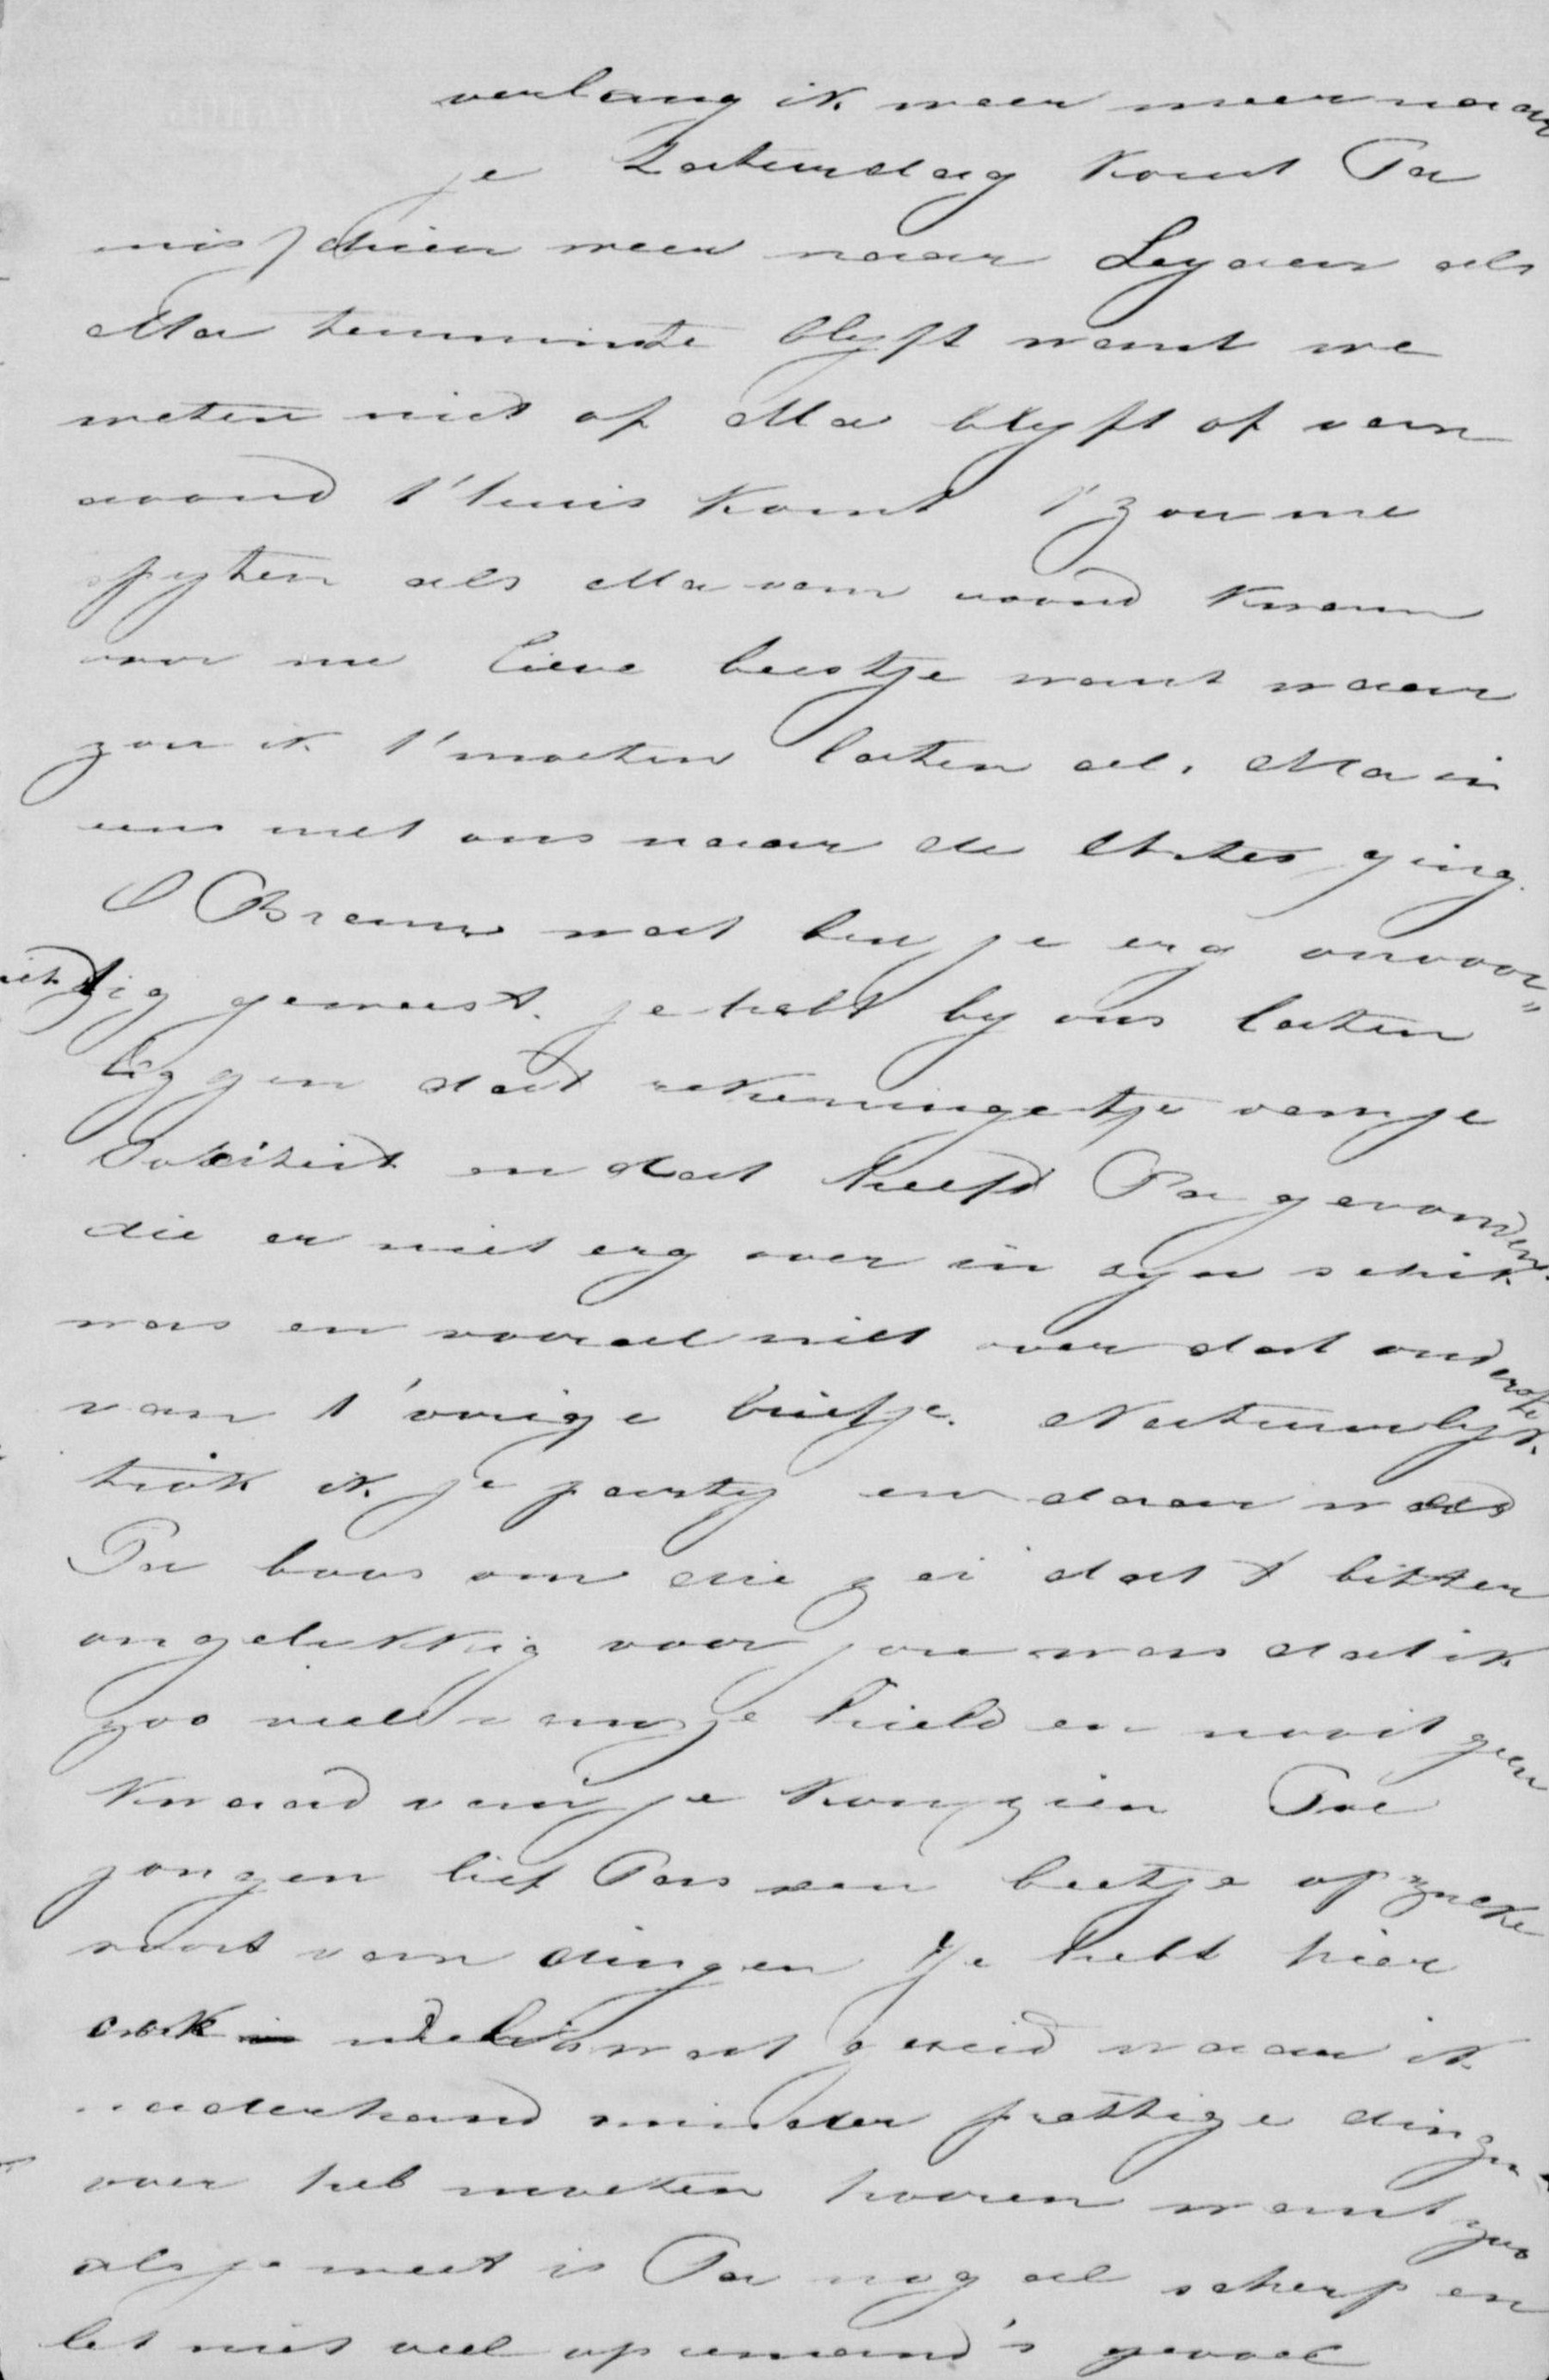 verlang ik meer meer naar
je Zaterdag komt Pa
misschien weer naar Leyden als
Ma tenminste blyft want we
weten niet of Ma blyft of van
avond t'huis komt t'zou me
spyten als Ma van avond kwam
voor me lieve beestje want waar
zou ik t'moeten laten als Ma in
eens met ons naar de ging.
O Bram wat ben je erg onvoor"
zichtig geweest. je hebt by ons laten
liggen dat rekeningetje van je
en dat heeft Pa gevonden
die er niet erg over in zyn schik.
was en vooral niet over dat
van t'vorige briefje. Natuurlyk
trok ik je party en daar was
Pa boos om die zei dat t bitter
ongelukkig voor jou was dat ik
zoo veel van je hield en nooit geen
kwaad van je kon zien Toe
jongen lief Pas een beetje op zulke
soort van dingen Je hebt hier
ook wel wat gezeid waar ik
naderhand minder prettige dingen
over heb moeten hooren want zoo
als je weet is Pa nog al scherp en
let niet veel op iemand's gevoel